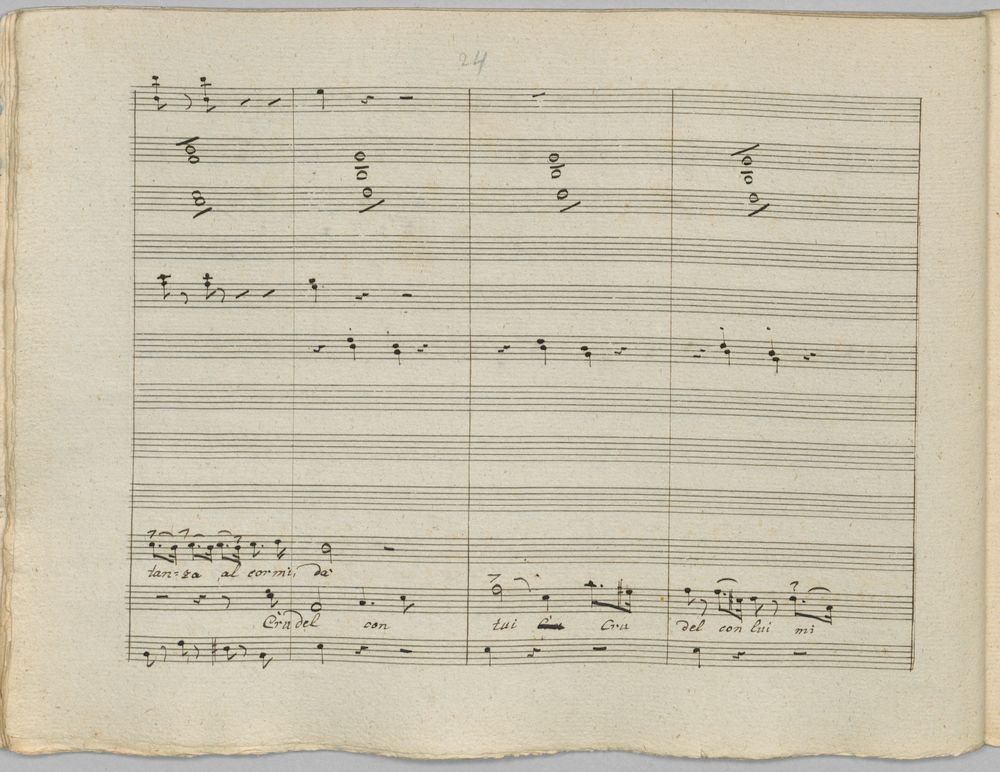 24
tan=za al cor mi, da
Cru del con tui Cru Cru del con lui mi